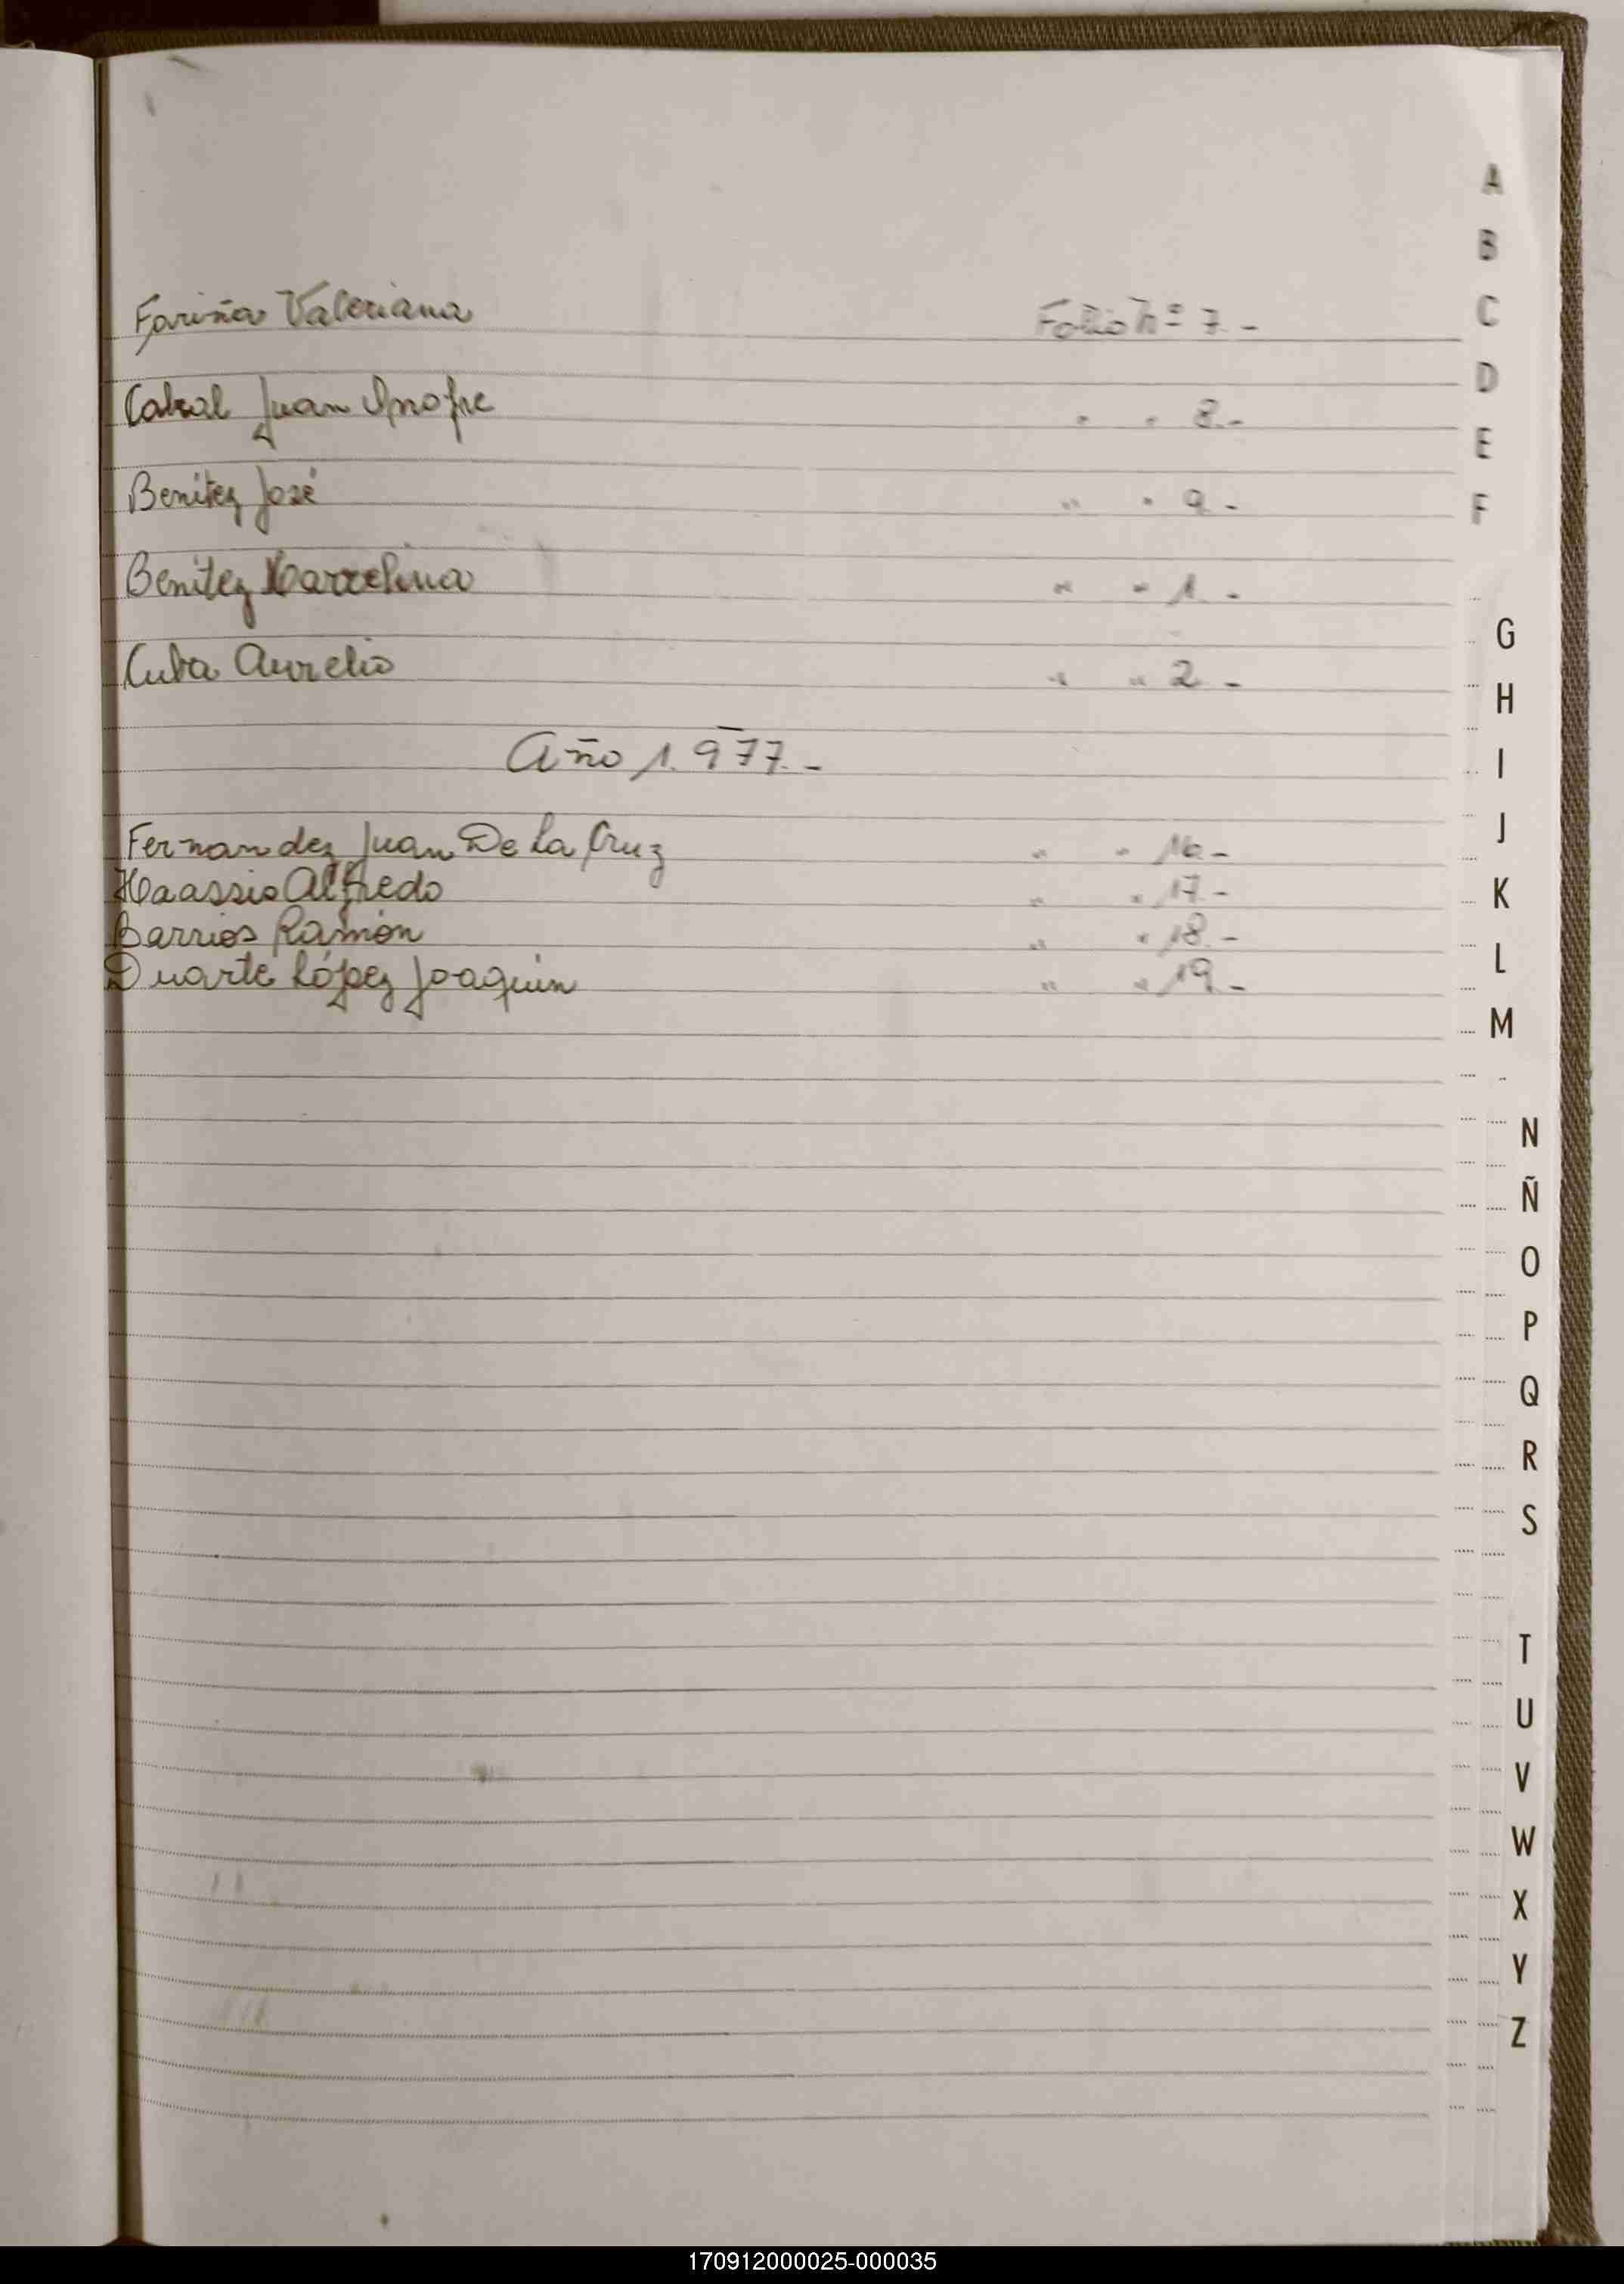 Fariña Valeriana Folio Nº 7.-
Cabral Juan Onofre " " 8.-
Benitez José " " 9.-
Benitez Marcelina " " 1.-
Cuba Aurelio " " 2.-
Año 1.977.-
Fernandez Juan De La Cruz " " 16.-
Alfredo " " 17.-
Barrios Ramón " " 18.-
Duarte López Joaquin " " 19.-
A
B
C
D
E
F
G
H
I
J
K
L
M
N
Ñ
O
P
Q
R
S
T
U
V
W
X
Y
Z
170912000025-000035